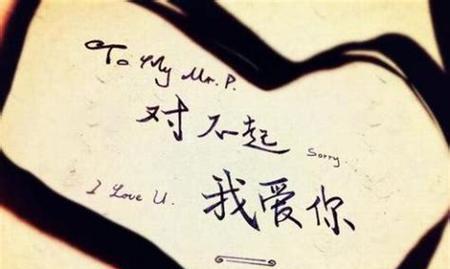 To My Mr. P.
对不起 Sorry...
I Love U. 我爱你